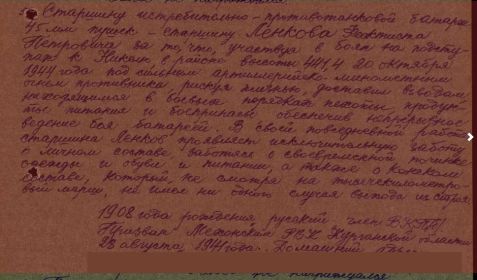 Старшину истребительно-противотанковой батареи
45 мм пушек - старшину Ленкова Феоктиста
Петровича за то, что, участвуя в боях на подсту-
пах к Никель, в районе высоты 441,4 20 октября
1944 года под сильным артиллерийско-минометным
огнем противника рискуя жизнью, доставил взводам,
находящимся в боевых порядках пехоты продук-
ты питания и боеприпасы обеспечив непрерывное
ведение боя батареей. В своей повседневной работе
старшина Ленков проявляет исключительную заботу
о личном составе, заботясь о своевременной починке
одежды и обуви и питании, а также о конском
составе, который, не смотря на тысячекилометро-
вый марш, не имел ни одного случая выхода из строя
1908 года рождения русский член ВКП/б/
Призван РВК Курганской области
28 августа 1941 года. Домашний